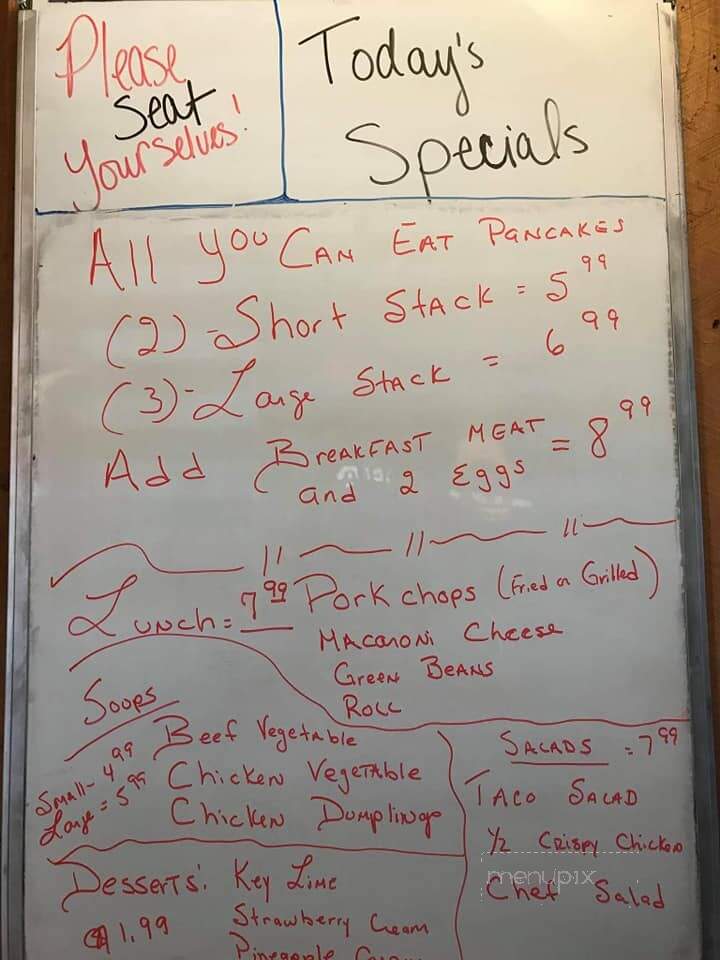 Please
Seat
Yourselves!
Today's
Specials
All You Can Eat Pancakes
(2)-Short Stack = 5 99
(3)-Large Stack = 6 99
Add Breakfast Meat = 8 99
and 2 Eggs
Lunch = 7 99 Pork chops (Fried or Grilled)
Macaroni Cheese
Green Beans
Roll
Soups
Small- 4 99
Large = 5 99
Beef Vegetable
Chicken Vegetable
Chicken Dumplings
Salads = 7 99
Taco Salad
1/2 Crispy Chicken
Chef Salad
menupix
Desserts: Key Lime
$1.99 Strawberry Cream
Pineapple